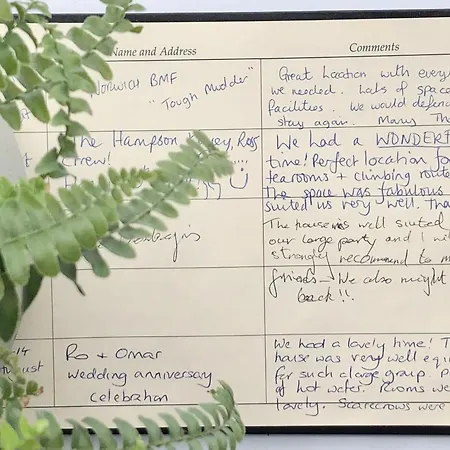 Name and Address
Comments
Norwich BMF
"Tough Mudder"
Great Location with every
we needed. Lots of space
facilities. We would
stay again. Many
The Hampson
Crew!
We had a
time! Perfect location
tearooms + climbing route
The space was fabulous
suited us very well.
The house is well suited
our large party and I
strongly recommend to
friends - We also might
back!!.
14
Ro + Omar
wedding anniversary
celebration
We had a lovely time!
house was very well
for such a large group.
of hot water. Rooms
lovely. Scarecrows were